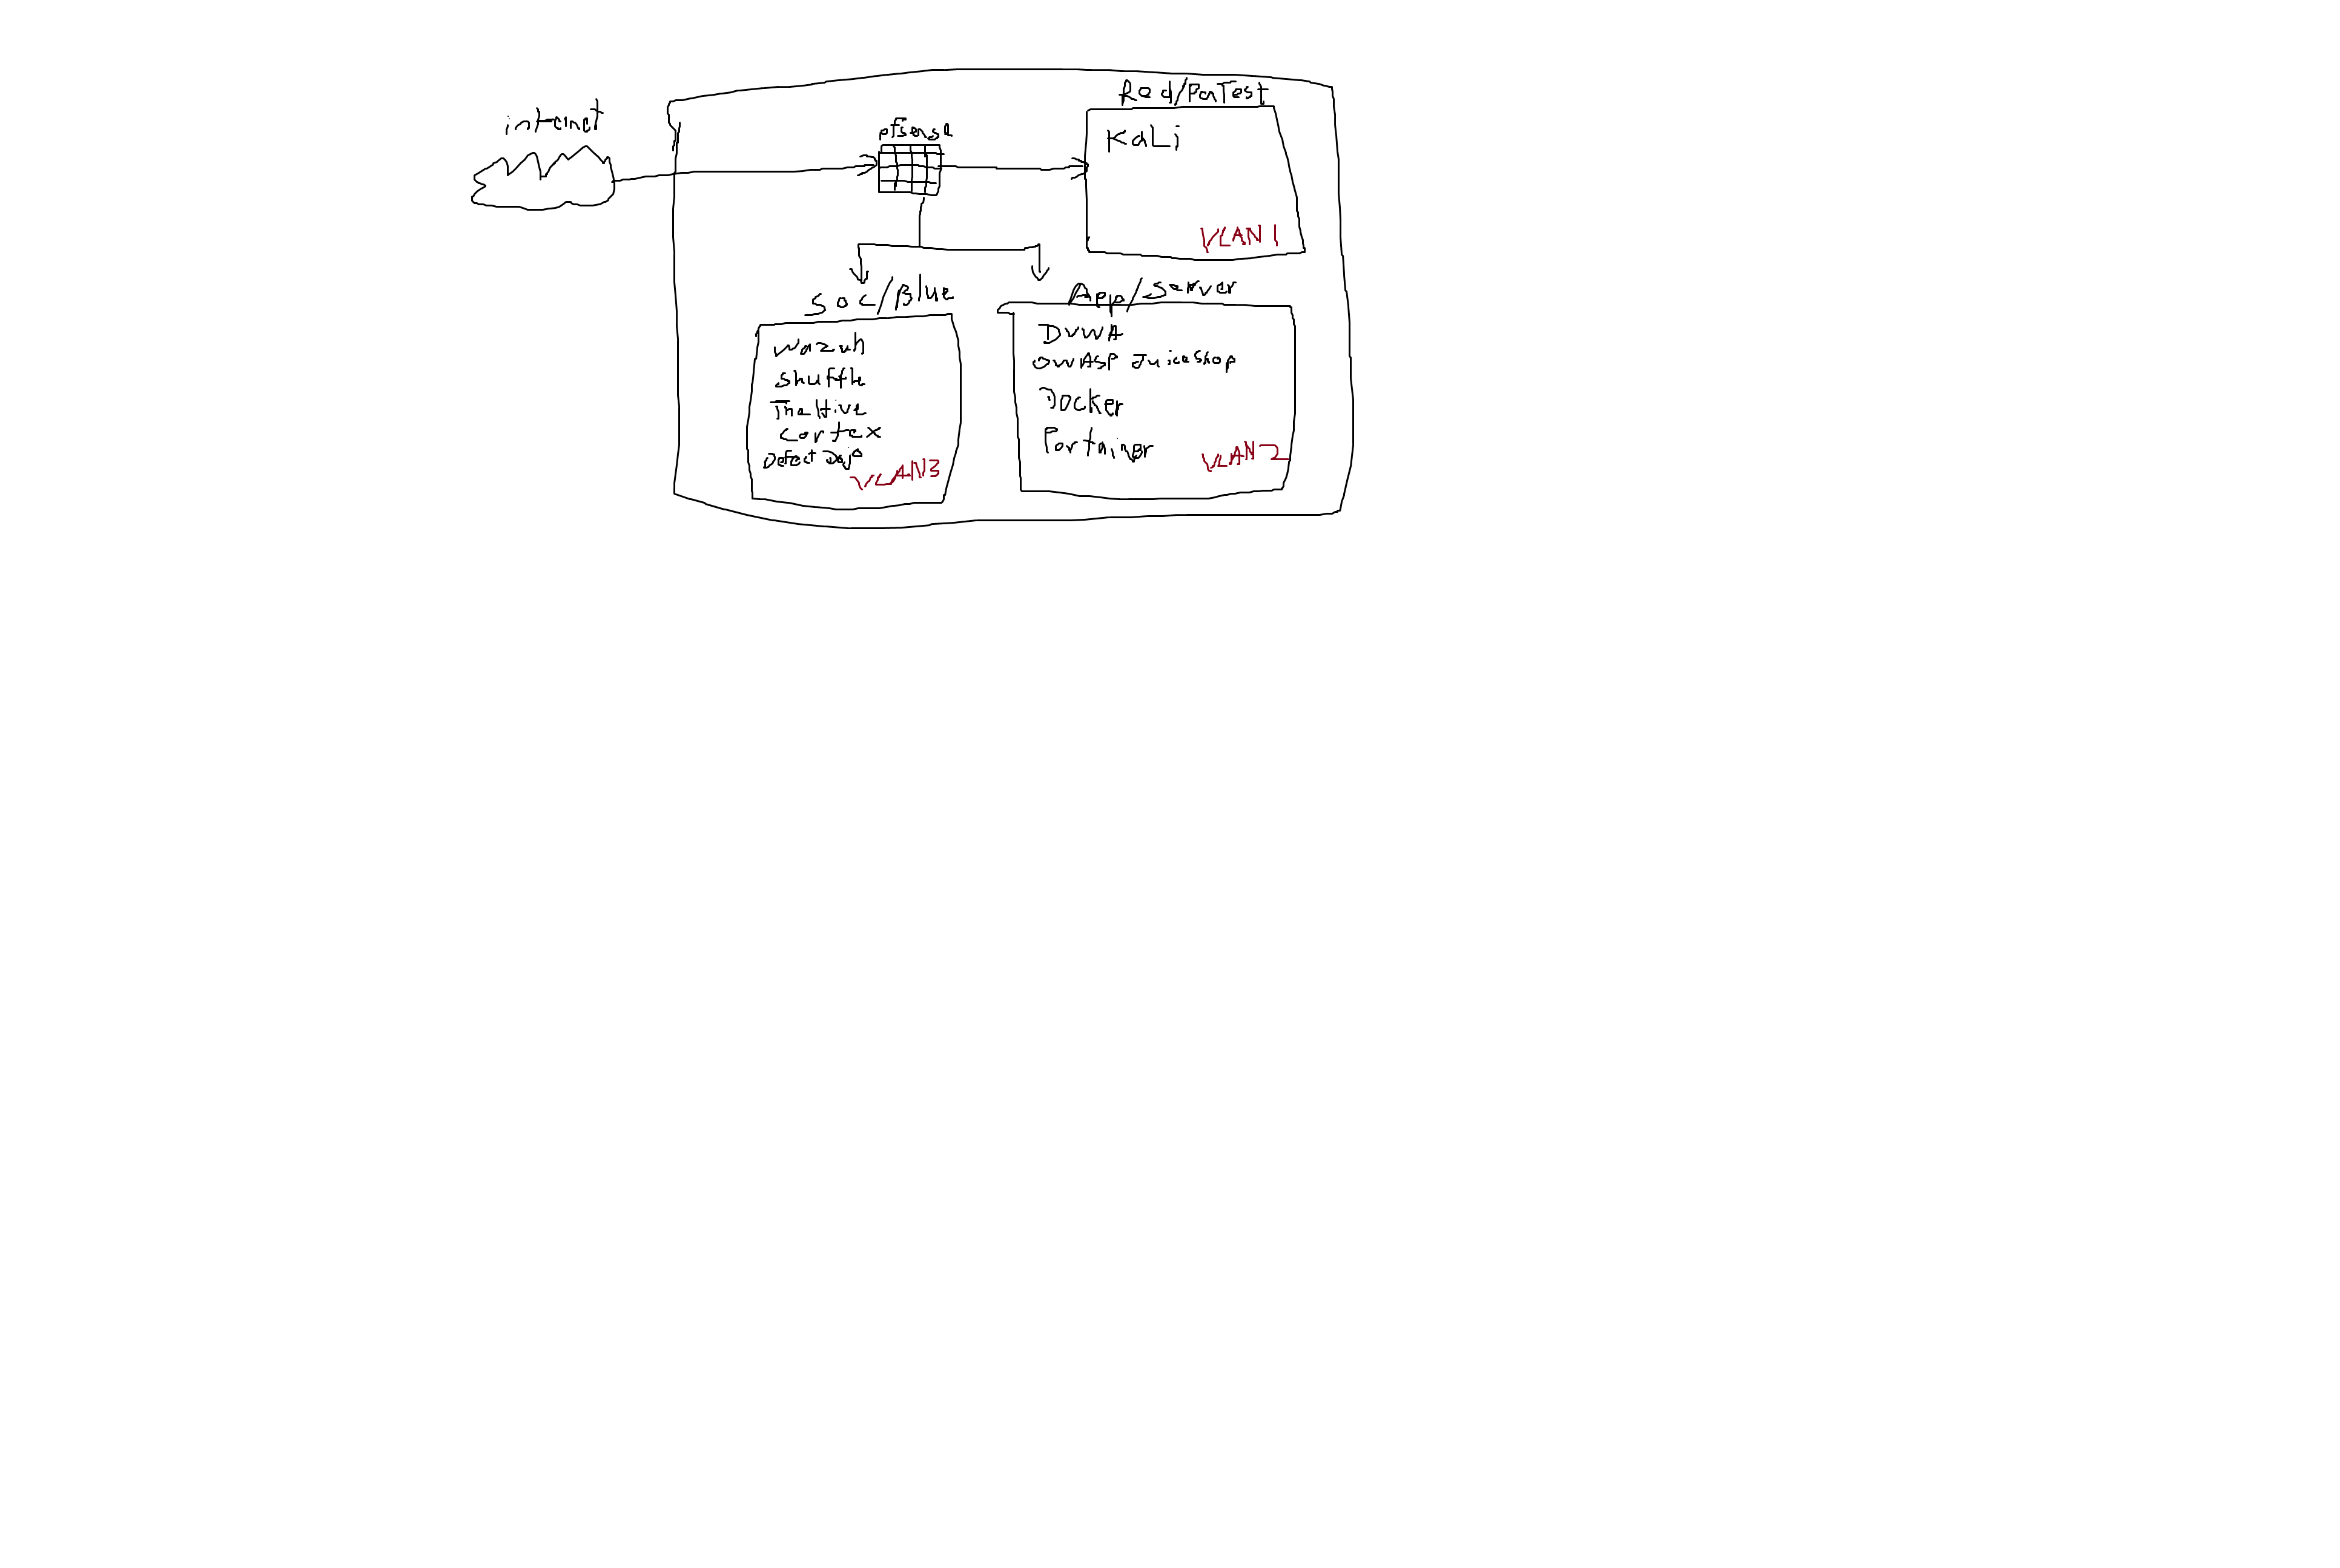 internet
pfsense
Red/PenTest
KaLi
VLAN1
Soc/Blue
Wazuh
Shuffle
TheHive
Cortex
Defect Dojo
VLAN3
App/Server
DVWA
OWASP JuiceShop
Docker
Portainer
VLAN2